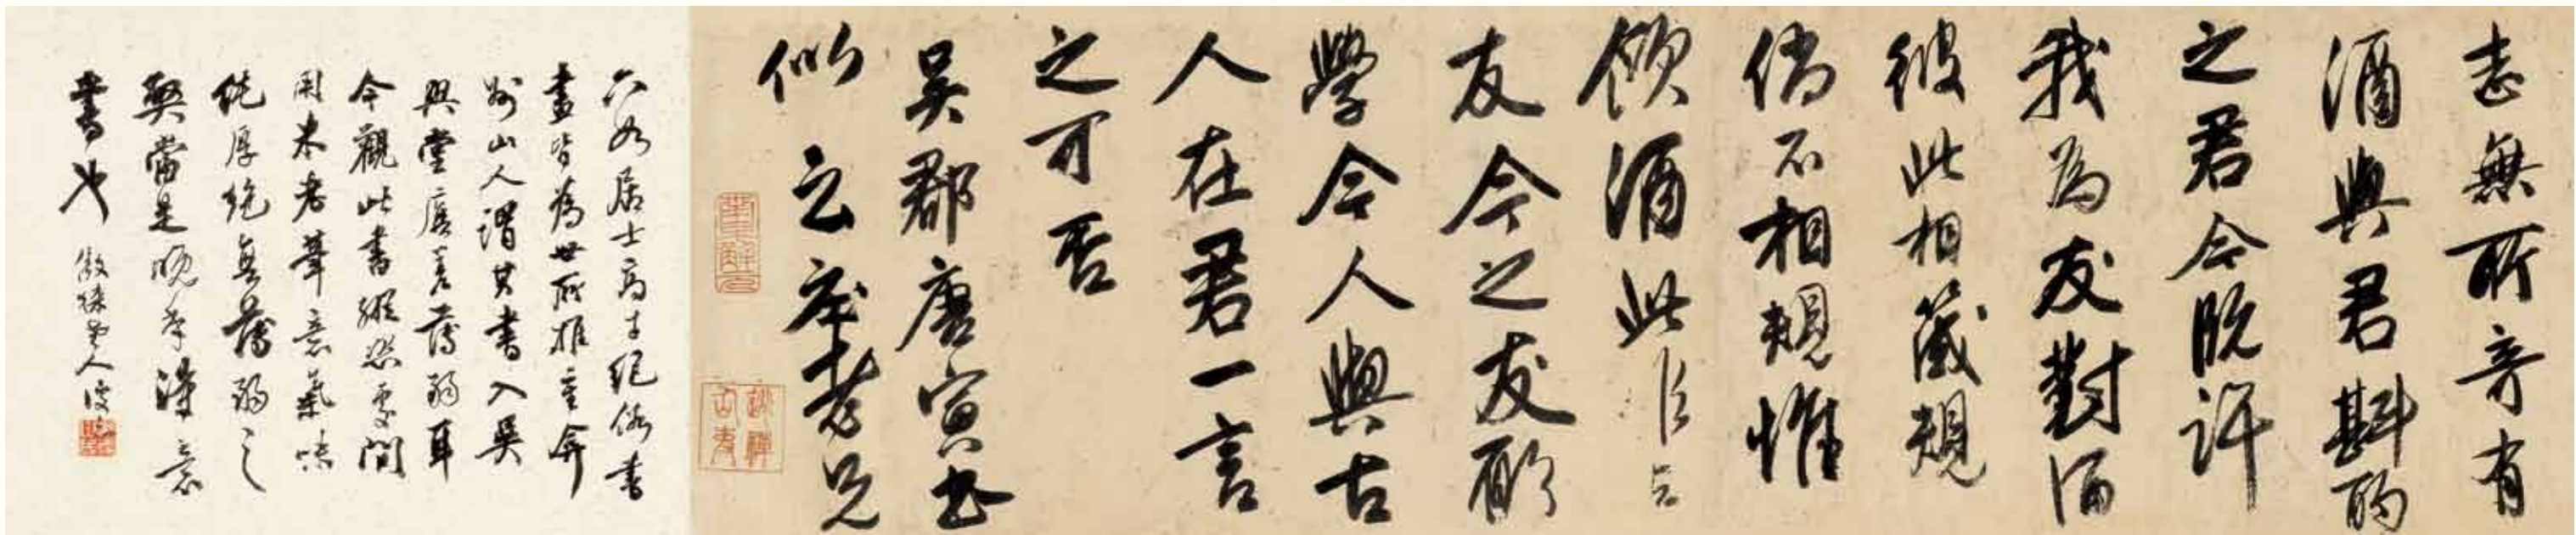 志無所奇有
酒與君斟酌
之君今既許
我為友對酒
彼此相箴規
倘不相規惟
飲酒此
友今之友
學今人與古
人在君一言
之可否
吳郡唐寅書
似立庵老兄
六如居士高才絕俗書
畫皆為世所推重弇
州山人謂其書入吳
興堂廡差薄弱耳
今觀此書縱恣處間
用米老筆意氣味
純厚絕無薄弱之
弊當是晚年得意
書也